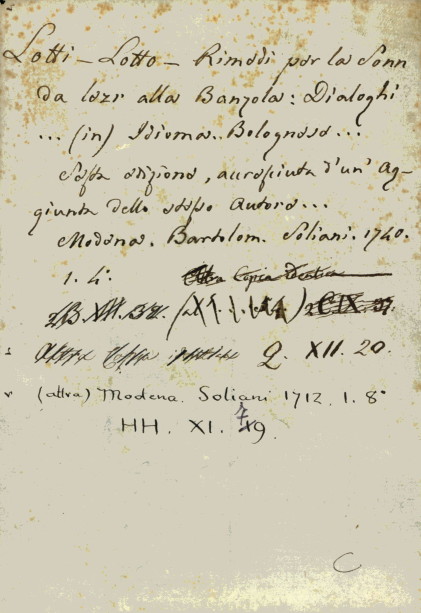 Lotti - Lotto - Rimedi per la Sonn
da lezr alla Banzola: Dialoghi
... (in) Idioma Bolognese ...
Sesta edizione, accresciuta d'un' Ag-
giunta dello stesso Autore ...
Modena. Bartolom. Soliani. 1740.
1. 4°
Altra Copia
Q. XII. 20.
(altra) Modena. Soliani 1712. 1. 8°
HH. XI. 9.
C